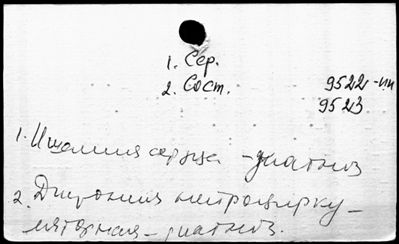 1. Сер.
2. Сост.
9522-ии
9523
1. Ишемия сердца - диагноз
2. Дистония нейроцирку-
ляторная - диагноз.